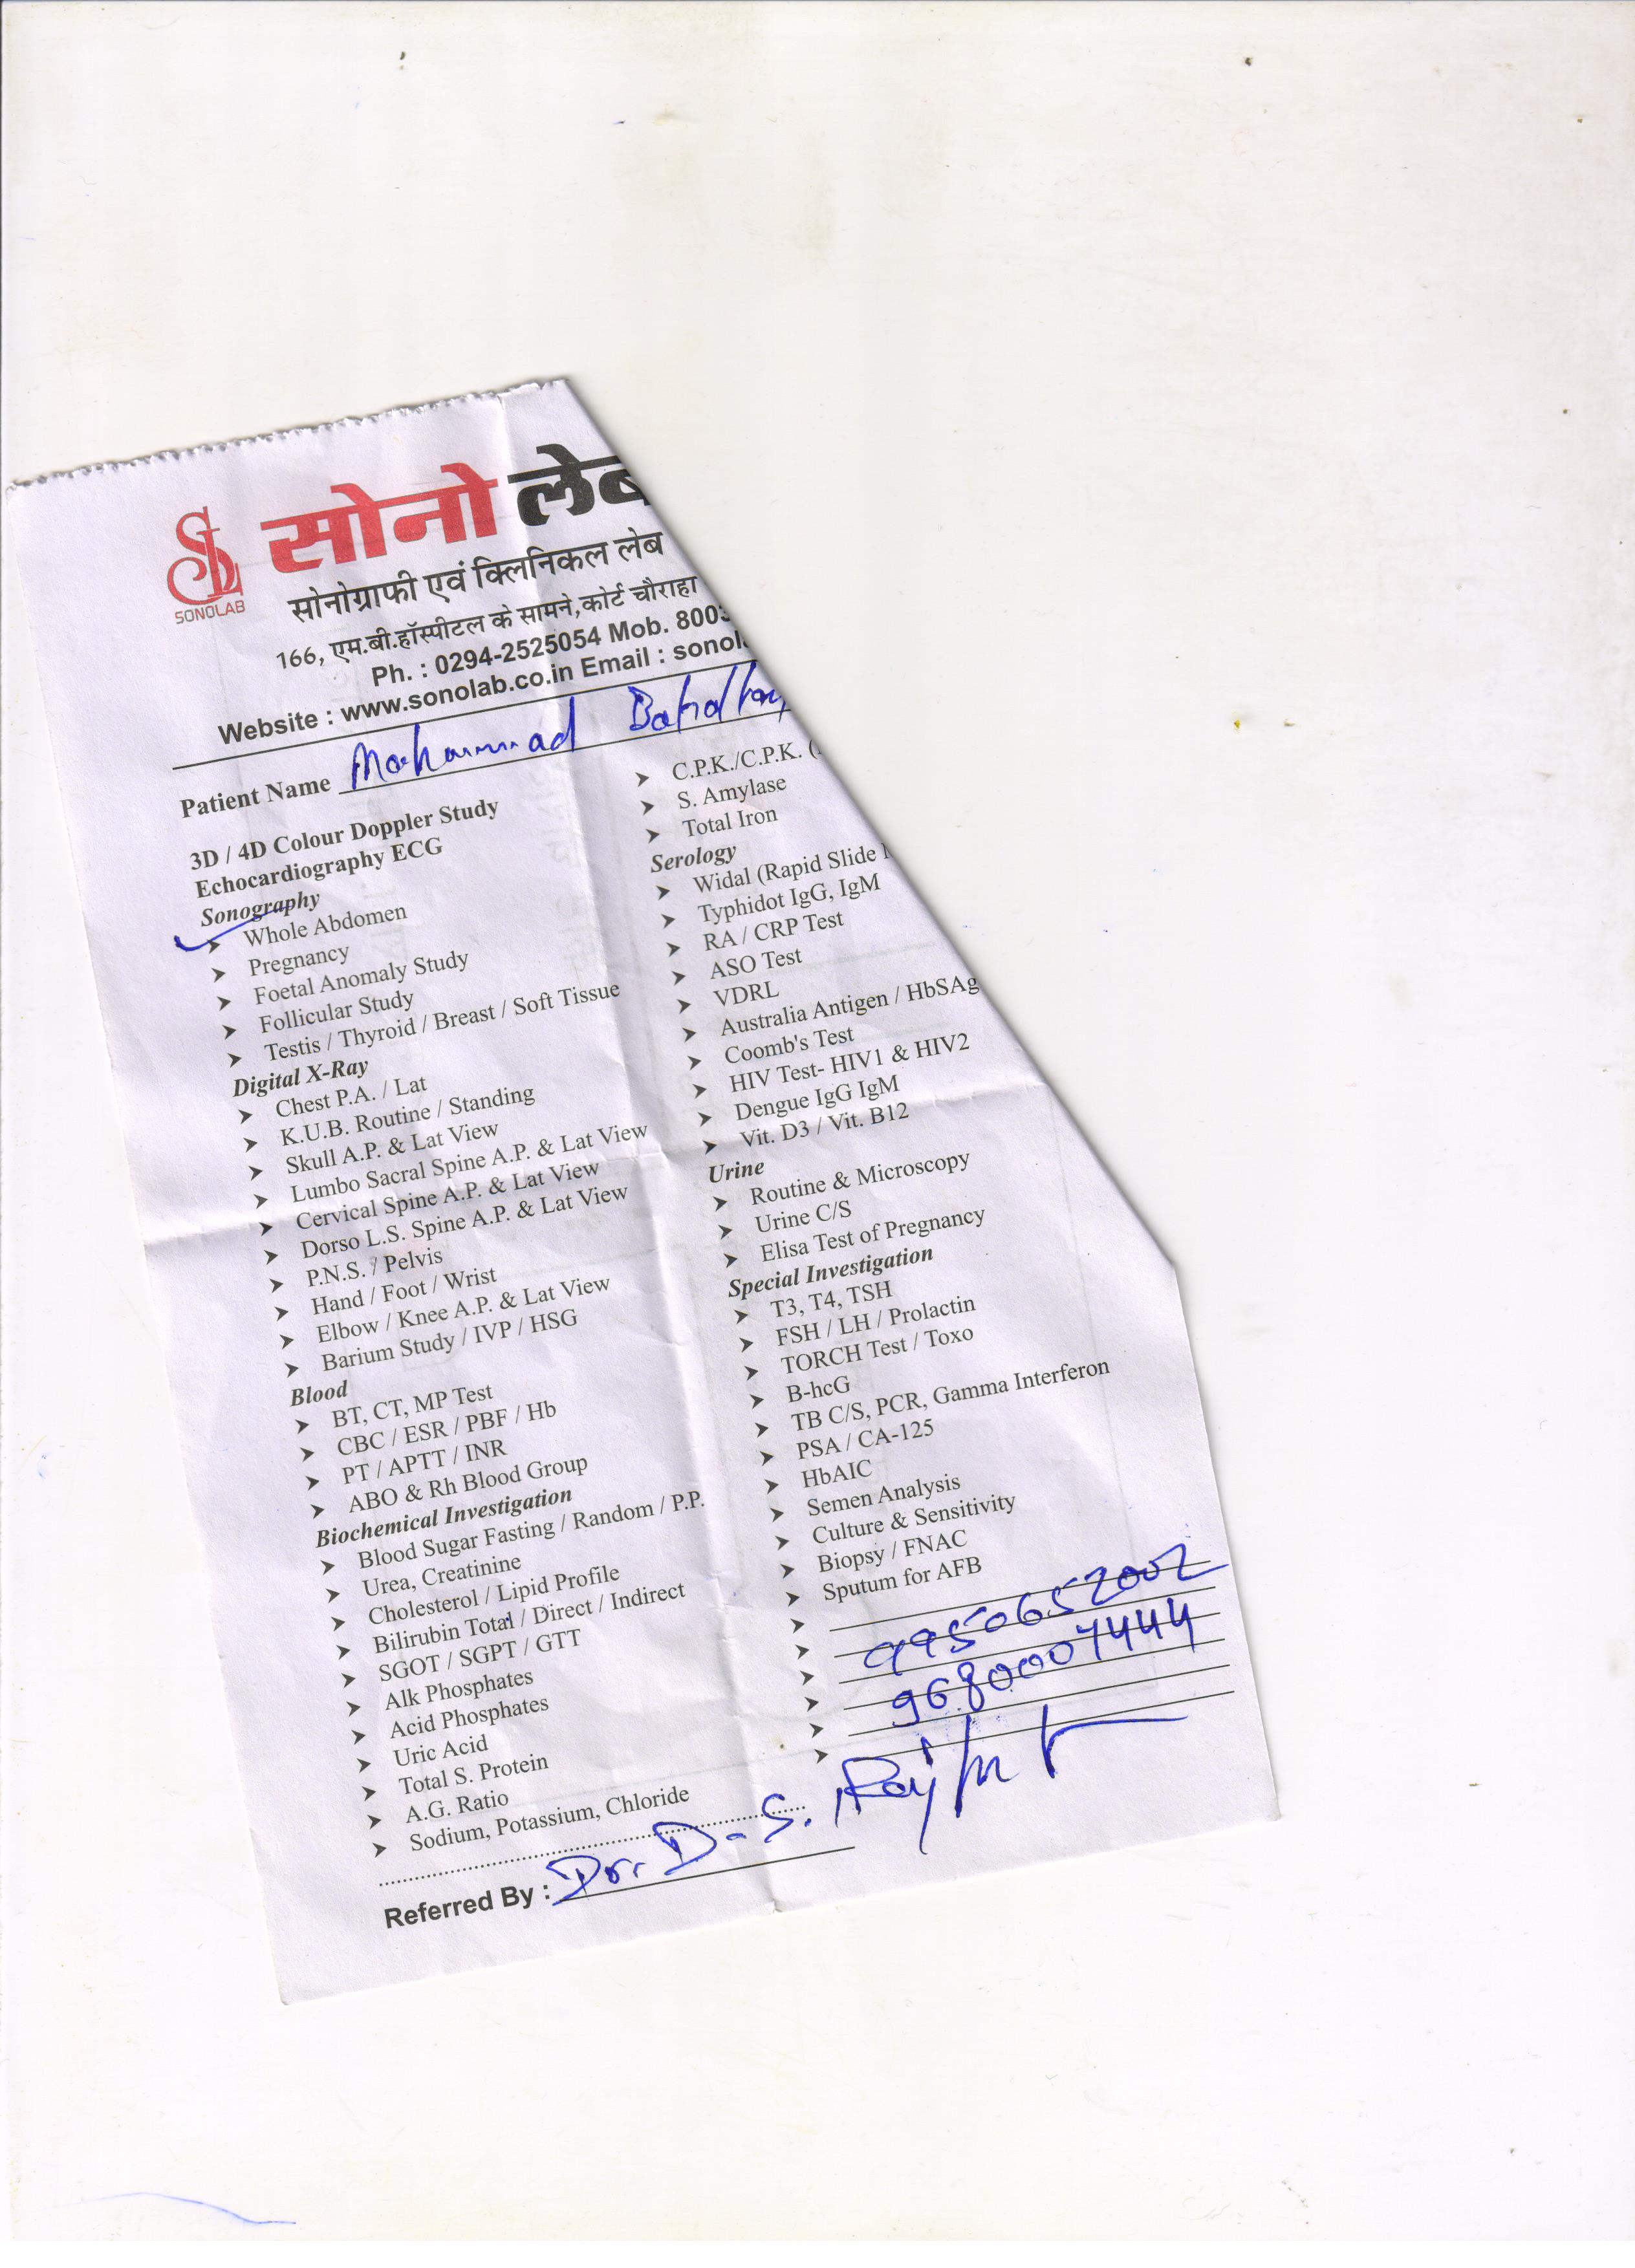 सोनो लेब
SL
SONOLAB
सोनोग्राफी एवं क्लिनिकल लेब
166, एम.बी.हॉस्पीटल के सामने,कोर्ट चौराहा
Ph. : 0294-2525054 Mob. 8003
Website : www.sonolab.co.in Email : sonol
Patient Name Mohammad
3D / 4D Colour Doppler Study
Echocardiography ECG
Sonography
➤ Whole Abdomen
➤ Pregnancy
➤ Foetal Anomaly Study
➤ Follicular Study
➤ Testis / Thyroid / Breast / Soft Tissue
Digital X-Ray
➤ Chest P.A. / Lat
➤ K.U.B. Routine / Standing
➤ Skull A.P. & Lat View
➤ Lumbo Sacral Spine A.P. & Lat View
➤ Cervical Spine A.P. & Lat View
➤ Dorso L.S. Spine A.P. & Lat View
➤ P.N.S. / Pelvis
➤ Hand / Foot / Wrist
➤ Elbow / Knee A.P. & Lat View
➤ Barium Study / IVP / HSG
Blood
➤ BT, CT, MP Test
➤ CBC / ESR / PBF / Hb
➤ PT / APTT / INR
➤ ABO & Rh Blood Group
Biochemical Investigation
➤ Blood Sugar Fasting / Random / P.P.
➤ Urea, Creatinine
➤ Cholesterol / Lipid Profile
➤ Bilirubin Total / Direct / Indirect
➤ SGOT / SGPT / GTT
➤ Alk Phosphates
➤ Acid Phosphates
➤ Uric Acid
➤ Total S. Protein
➤ A.G. Ratio
➤ Sodium, Potassium, Chloride
➤ C.P.K./C.P.K. (
➤ S. Amylase
➤ Total Iron
Serology
➤ Widal (Rapid Slide
➤ Typhidot IgG, IgM
➤ RA / CRP Test
➤ ASO Test
➤ VDRL
➤ Australia Antigen / HbSAg
➤ Coomb's Test
➤ HIV Test- HIV1 & HIV2
➤ Dengue IgG IgM
➤ Vit. D3 / Vit. B12
Urine
➤ Routine & Microscopy
➤ Urine C/S
➤ Elisa Test of Pregnancy
Special Investigation
➤ T3, T4, TSH
➤ FSH / LH / Prolactin
➤ TORCH Test / Toxo
➤ B-hcG
➤ TB C/S, PCR, Gamma Interferon
➤ PSA / CA-125
➤ HbAIC
➤ Semen Analysis
➤ Culture & Sensitivity
➤ Biopsy / FNAC
➤ Sputum for AFB
9950652002
9680007444
Referred By : Dr. D-S. Rajput